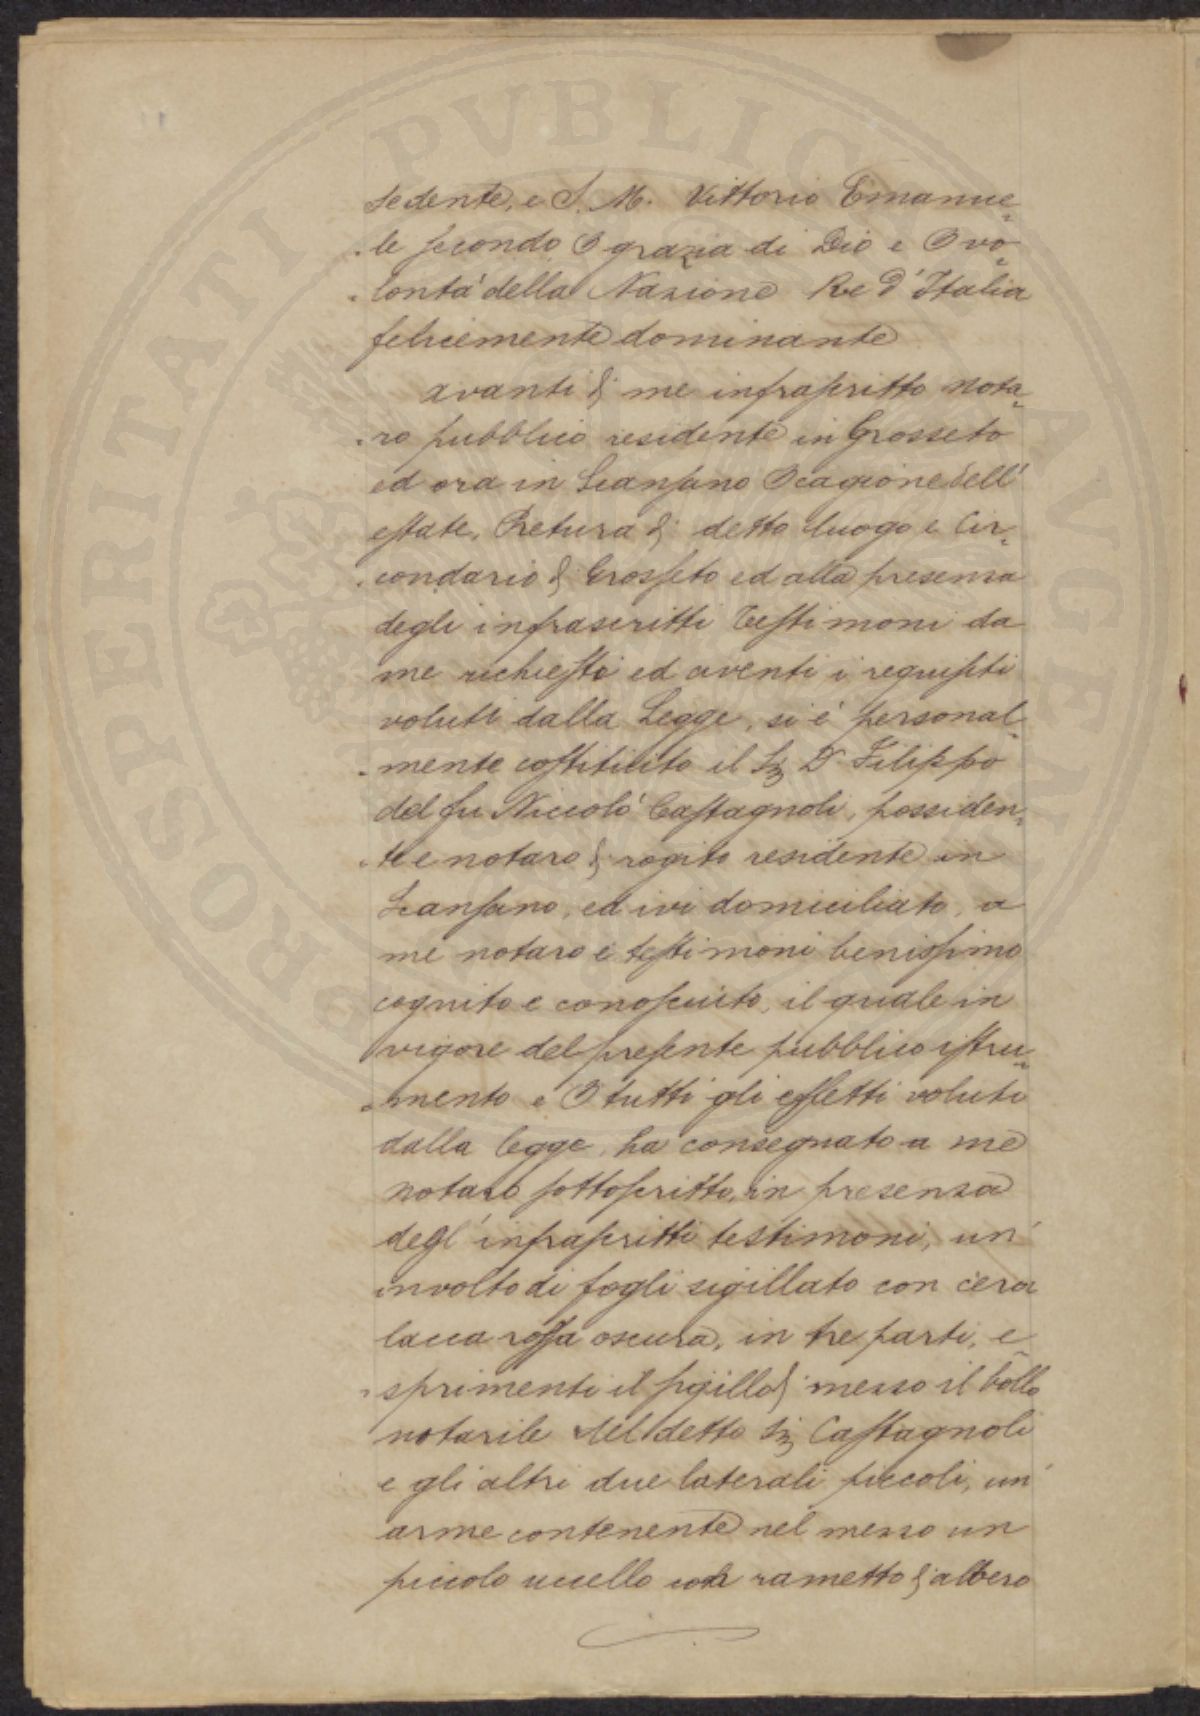 sedente, e S. M. Vittorio Emanue-
-le secondo P grazia di Dio e P vo-
-lontà della Nazione Re d'Italia
felicemente dominante
avanti di me infrascritto nota-
-ro pubblico residente in Grosseto
ed ora in Scansano P cagione dell'
estate, Pretura di detto luogo e Cir-
-condario di Grosseto ed alla presenza
degli infrascritti testimoni da
me richiesti ed aventi i requisiti
voluti dalla Legge, si è personal-
-mente costituito il Sig Dr Filippo
del fu Niccolò Castagnoli, possiden-
-te e notaro di rogito residente in
Scansano, ed ivi domiciliato, a
me notaro e testimoni benissimo
cognito e conosciuto, il quale in
vigore del presente pubblico istru-
-mento e P tutti gli effetti voluti
dalla legge, ha consegnato a me
notaro sottoscritto, in presenza
degl'infrascritti testimoni, un'
involto di fogli sigillato con cera
lacca rossa oscura, in tre parti, e-
-sprimenti il sigillo di mezzo il bollo
notarile del detto Sig Castagnoli
e gli altri due laterali piccoli, un'
arme contenente nel mezzo un
piccolo uccello con rametto di albero
PROSPERITATI PVBLICAE AVGENDAE